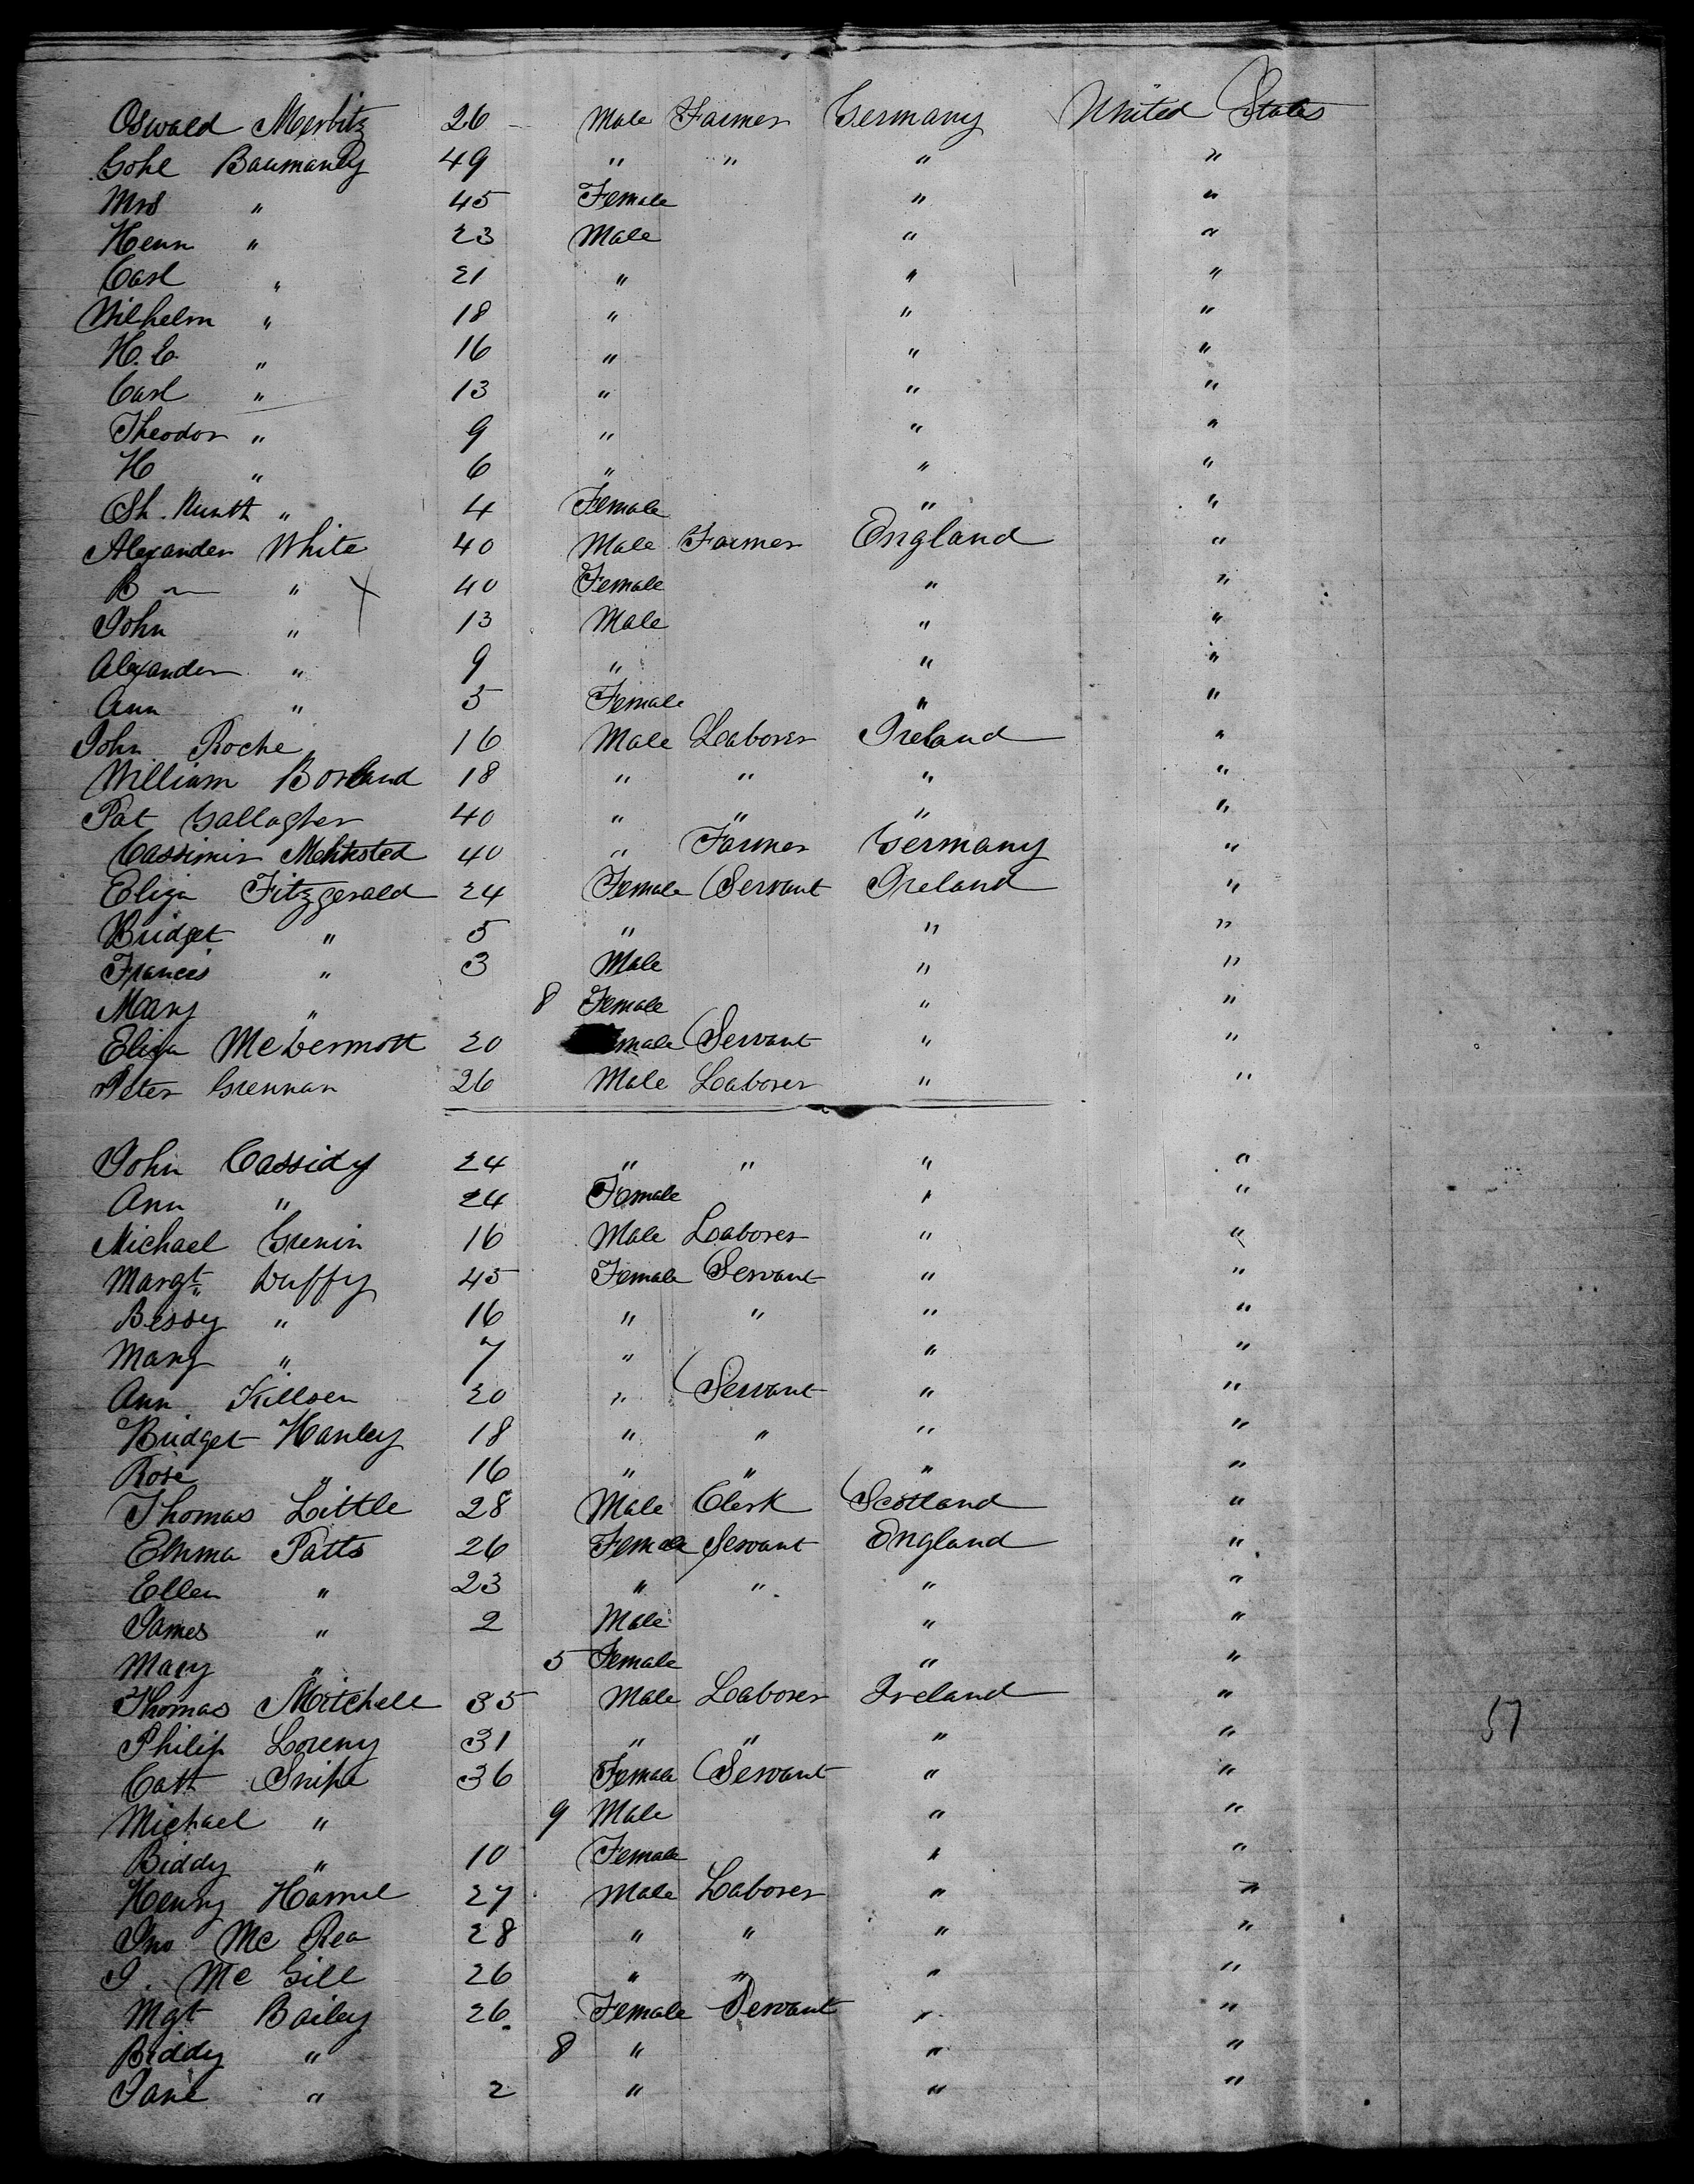 Oswald Merbitz 26 Male Farmer Germany United States
Gohl Baumany 49 " " " "
Mrs " 45 Female " "
Henn " 23 Male " "
Carl " 21 " " "
Wilhelm " 18 " " "
H. C. " 16 " " "
Carl " 13 " " "
Theodor " 9 " " "
H " 6 " " "
Sh. " 4 Female " "
Alexander White 40 Male Farmer England "
B " 40 Female " "
John " 13 Male " "
Alexander " 9 " " "
Ann " 5 Female " "
John Roche 16 Male Laborer Ireland "
William Borland 18 " " " "
Pat Gallagher 40 " " " "
Cassimir 40 " Farmer Germany "
Eliza Fitzgerald 24 Female Servant Ireland "
Bridget " 5 " " "
Francis " 3 Male " "
Mary " 8 Female " "
Eliza McDermott 20 male Servant " "
Peter Grennan 26 Male Laborer " "
John Cassidy 24 " " " "
Ann " 24 Female " "
Michael Grenin 16 Male Laborer " "
Margt. Duffy 45 Female Servant " "
Bessy " 16 " " " "
Mary " 7 " " "
Ann Killoen 20 " Servant " "
Bridget Hanley 18 " " " "
Rose " 16 " " " "
Thomas Little 28 Male Clerk Scotland "
Emma Patts 26 Female Servant England "
Ellen " 23 " " " "
James " 2 Male " "
Mary " 5 Female " "
Thomas Mitchell 35 Male Laborer Ireland "
Philip Loreny 31 " " " "
57
Cath Snipe 36 Female Servant " "
Michael " 9 Male " "
Biddy " 10 Female " "
Henry Hamil 27 Male Laborer " "
Jno Mc Rea 28 " " " "
J. Mc Gill 26 " " " "
Mgt Bailey 26 Female Servant " "
Biddy " 8 " " "
Jane " 2 " " "